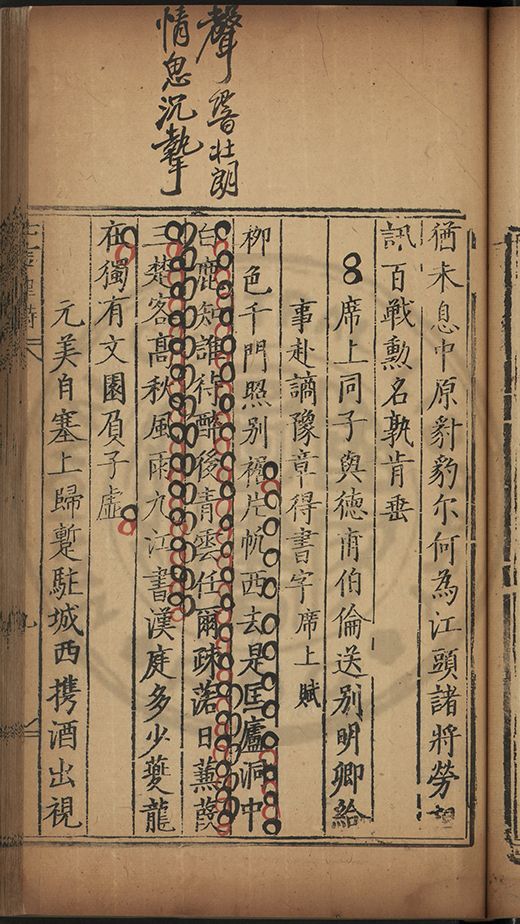 聲響壯朗
情思沉摯
猶未息中原豺豹尔何為江頭諸將勞
訊百戰勲名孰肯垂
席上同子與德甫伯倫送别明卿給
事赴謫豫章得書字席上賦
柳色千門照别裾片帆西去是匡廬洞中
白鹿知誰待醉後青雲任爾踈落日蒹葭
三楚客高秋風雨九江書漢庭多少夔龍
在獨有文園負子虛
元美自塞上歸蹔駐城西携酒出視